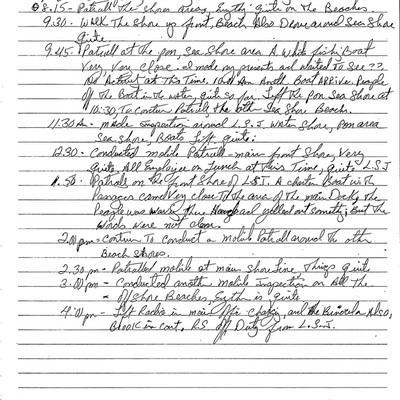 08:15 - Patroll the shore Area, Evythi quite on the Beaches.
9.30 - Walk The Shore up front, Beach Also Drove around Sea Shore
quite
9.45 - Patroll at the pon, Sea Shore area A white fishi Boat
Very Very Close. I made my presents and Waited To See ??
No Activit at This Time, 10:00 Am Anoth Boat ARRIVE People
off The Boat in the water, quite so far I Left the pon Sea Shore at
10:30 To contin Patroll, the oth Sea Shore Beach.
11.30 Am - made Inspection around L.S.J Water Shore, Pon area
Sea shore, Boats Left. quite.
12:30 - Conducted mobile Patroll - main front Shore, Very
Quite, All Employee on Lunch at this Time, Quite L.S.J
1.50 - Patroll on the front Shore of L.S.J. A charter Boat with
Passages came Very Close To the area of the main Dock, the
People was there and yelled out somethi, But the
Words were not clear.
2.00 pm - contin To Conduct a mobile Patroll around the oth
Beach Shores.
2.30 pm - Patrolled mobile at main shore Line, Things quite
3:00 pm - Conducted anoth mobile Inspection on All The
off Shore Beaches, Evythin is quite
4:00 pm - Left Radio in main offic chargin, and the Binocula Also,
Block in cont, RS off Duty from L.S.J.